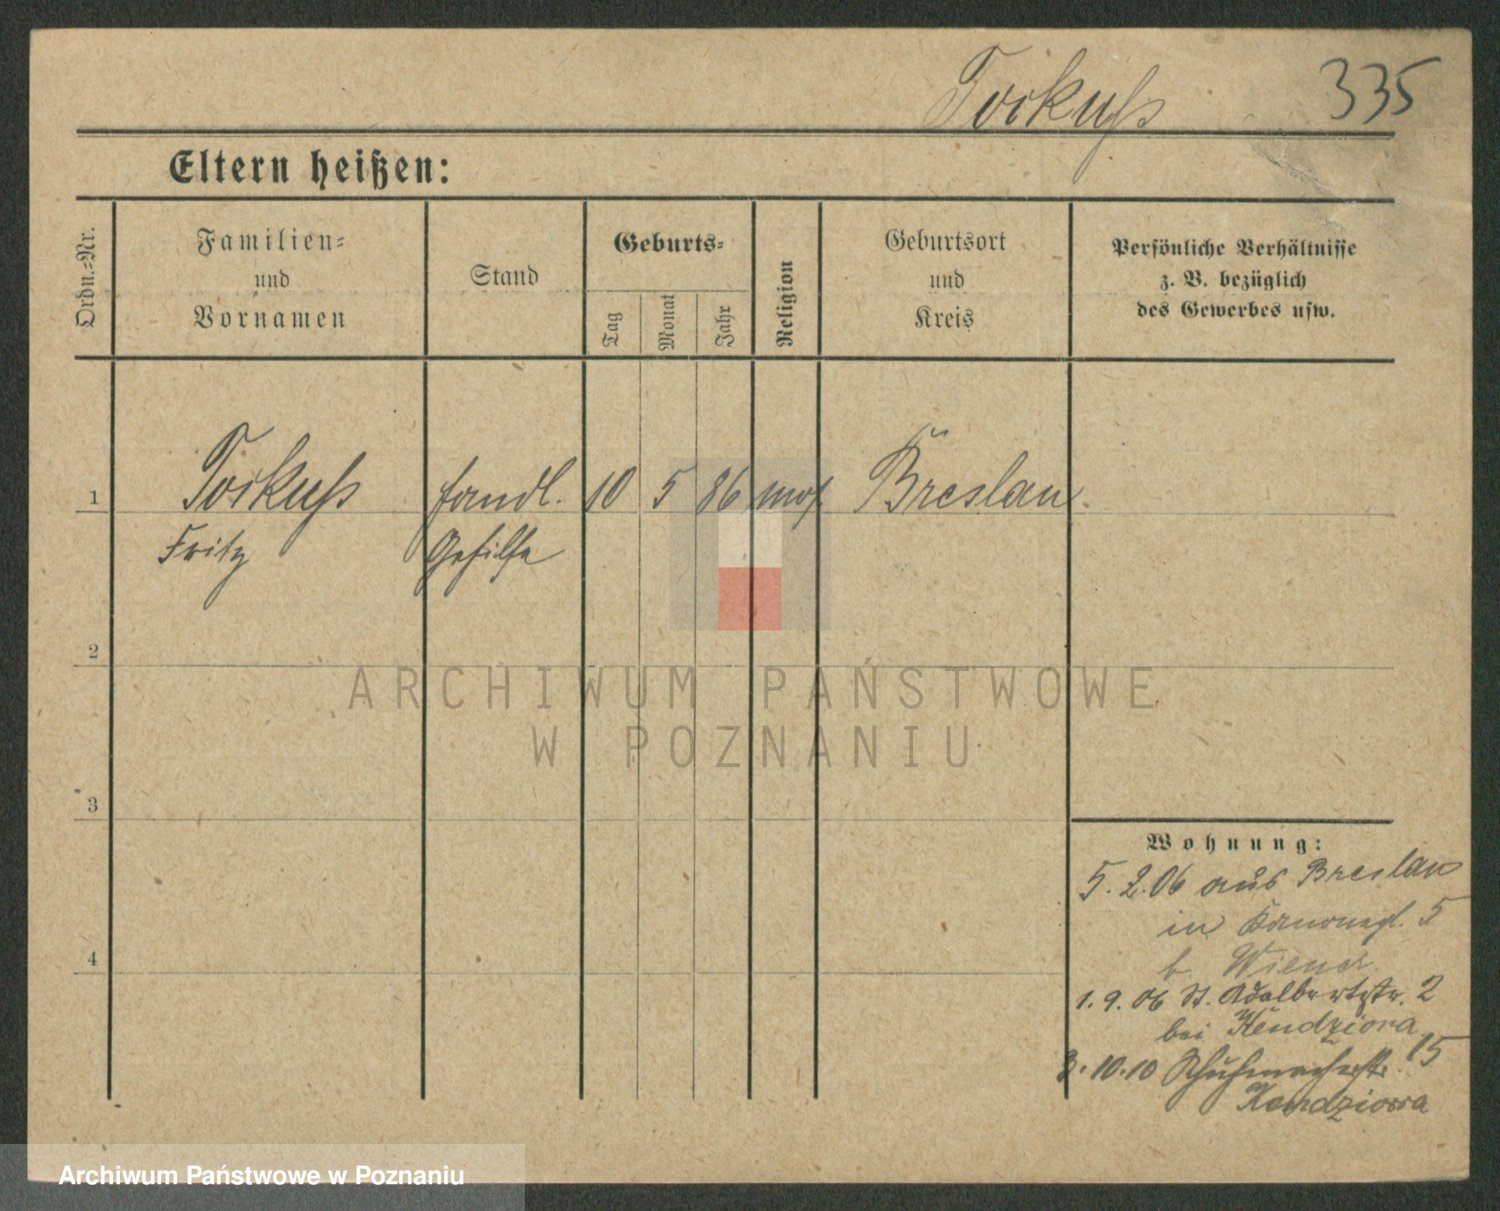 Torkuhs 335
Eltern heißen:
Ordn.-Nr.
Familien-
und
Vornamen
Stand
Geburts-
Tag
Monat
Jahr
Religion
Geburtsort
und
Kreis
Persönliche Verhältnisse
z. B. bezüglich
des Gewerbes usw.
1 Handl. 10 5 86 mos. Breslau
Fritz Gehilfe
2
3
4
Wohnung:
5.2.06 aus Breslau
in 5
b. Wiener
1.9.06 St. Adalbertstr. 2
bei Kendziora
3.10.10 Schuhmacherstr. 15
Kendziora
ARCHIWUM PAŃSTWOWE
W POZNANIU
Archiwum Państwowe w Poznaniu